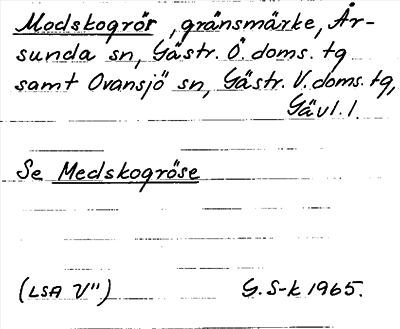 Modskogrör, gränsmärke, År-
sunda sn, Gästr. Ö. doms. tg
samt Ovansjö sn, Gästr. V. doms. tg,
Gävl. l.
Se Medskogröse
(LSA V") G. S-k 1965.